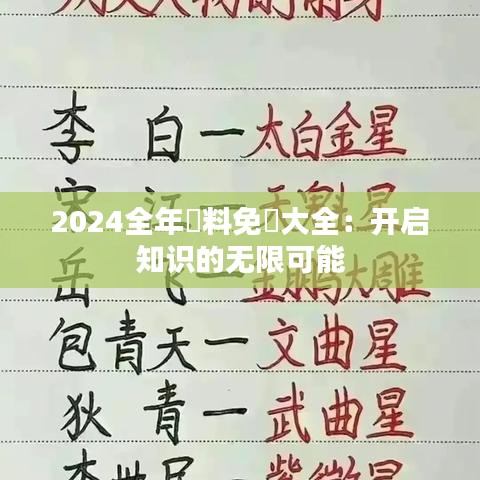 人物的
李 白一太白金星
2024全年料免大全：开启
知识的无限可能
岳 飞一金鹏大雕
包青天一文曲星
狄 青一武曲星